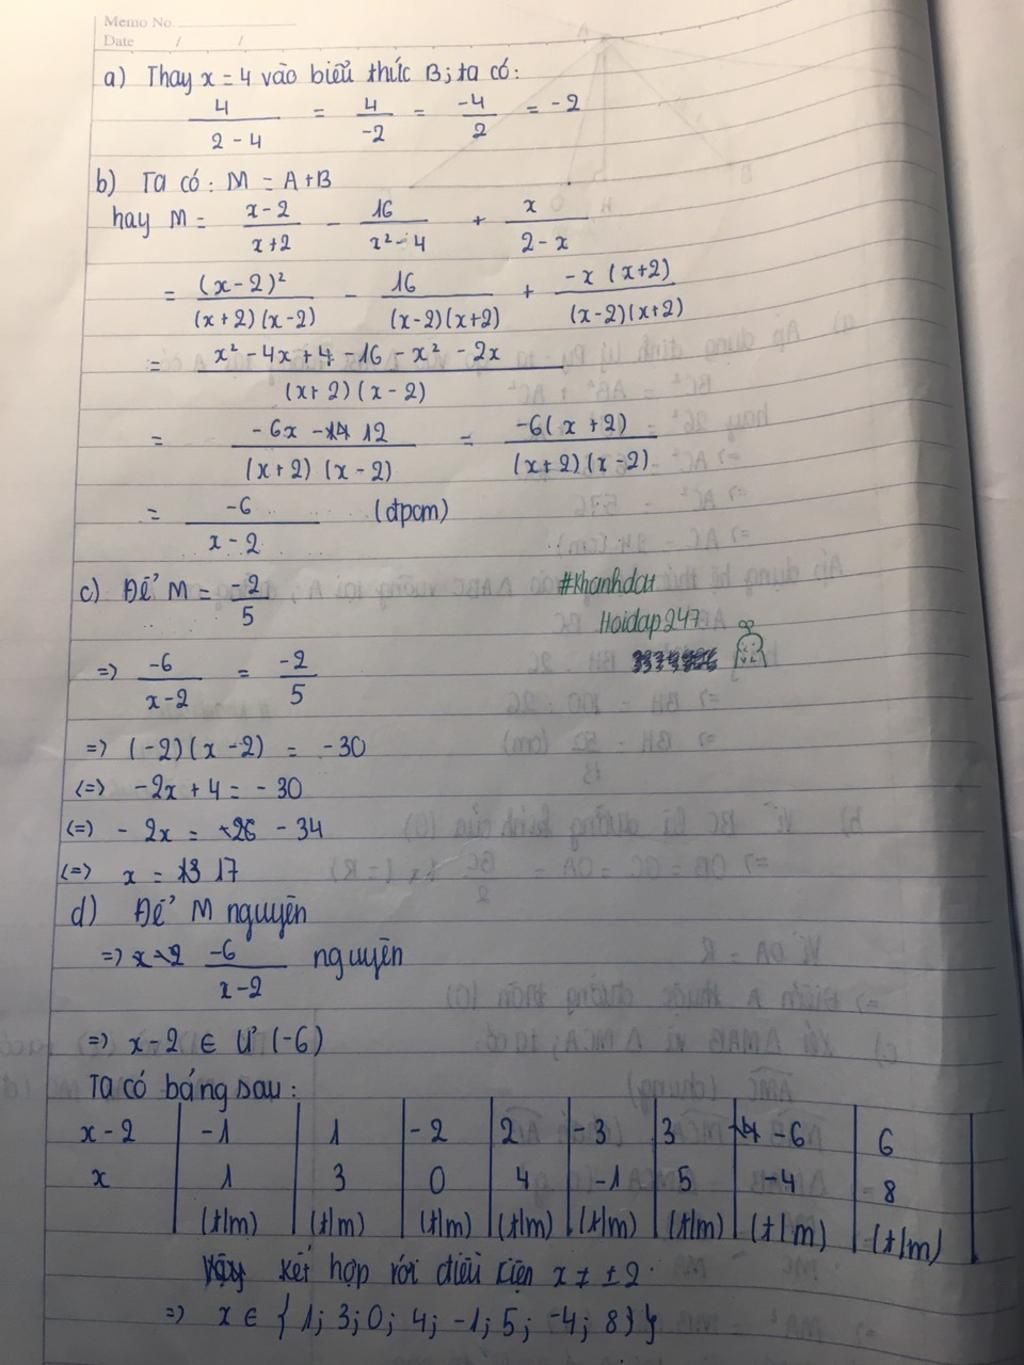 Memo No.
Date / /
a) Thay x = 4 vào biểu thức B; ta có:
4/(2 - 4) = 4/-2 = -4/2 = -2
b) Ta có: M = A+B
hay M = (x-2)/(x+2) - 16/(x² - 4) + x/(2 - x)
= (x-2)²/((x+2)(x-2)) - 16/((x-2)(x+2)) + -x(x+2)/((x-2)(x+2))
= (x² - 4x + 4 - 16 - x² - 2x)/((x+2)(x-2))
= (-6x - 12)/((x+2)(x-2)) = -6(x+2)/((x+2)(x-2))
= -6/(x-2) (đpcm)
c) Để M = -2/5
#Khanhdat
Hoidap247
=> -6/(x-2) = -2/5
=> (-2)(x-2) = -30
<=> -2x + 4 = -30
<=> -2x = -34
<=> x = 17
d) Để M nguyên
=> -6/(x-2) nguyên
=> x-2 ∈ Ư(-6)
Ta có bảng sau:
x-2 | -1 | 1 | -2 | 2 | -3 | 3 | -6 | 6
x | 1 | 3 | 0 | 4 | -1 | 5 | -4 | 8
(t/m) (t/m) (t/m) (t/m) (t/m) (t/m) (t/m) (t/m)
Vậy kết hợp với điều kiện x ≠ ±2
=> x ∈ {1; 3; 0; 4; -1; 5; -4; 8}